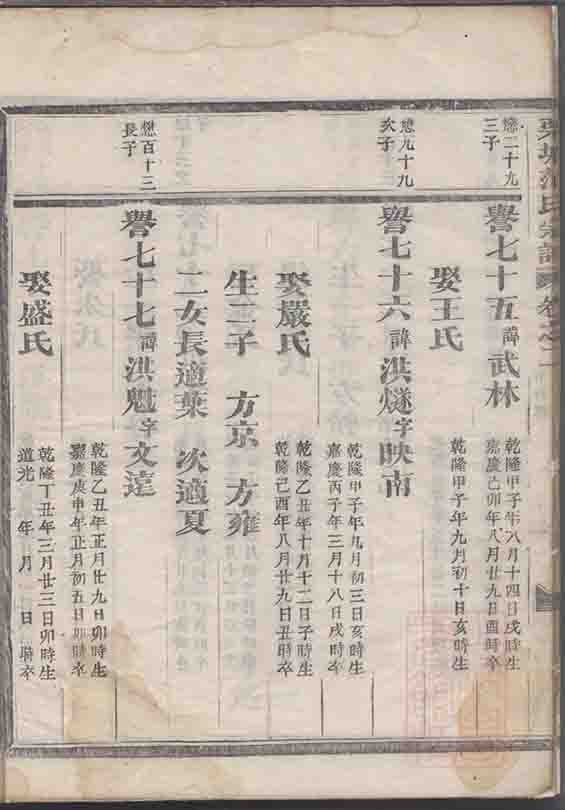 氏宗譜 卷之二
懋二十九
三子
譽七十五 諱 武林
乾隆甲子年八月十四日戌時生
嘉慶己卯年八月廿九日酉時卒
娶王氏
乾隆甲子年九月初十日亥時生
懋九十九
次子
譽七十六 諱 洪燧 字 映南
乾隆甲子年九月初三日亥時生
嘉慶丙子年三月十八日戌時卒
娶嚴氏
乾隆乙丑年十月十二日子時生
乾隆己酉年八月廿九日丑時卒
生二子 方京 方雍
二女長適葉 次適夏
懋百十三
長子
譽七十七 諱 洪魁 字 文達
乾隆乙丑年正月廿九日卯時生
嘉慶庚申年正月初五日卯時卒
娶盛氏
乾隆丁丑年三月廿三日卯時生
道光 年 月 日 時卒